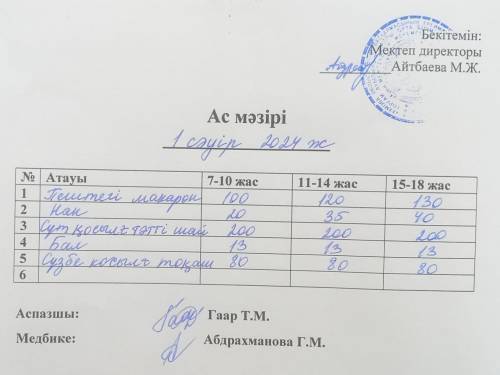 Бекітемін:
Мектеп директоры
Айтбаева М.Ж.
Ас мәзірі
1 сәуір 2024 ж
№ Атауы 7-10 жас 11-14 жас 15-18 жас
1 Пештегі макарон 100 120 130
2 Нан 20 35 40
3 Сүт қосылғ тәтті шай 200 200 200
4 Бал 13 13 13
5 Сүзбе қосылғ тоқаш 80 80 80
6
Аспазшы: Гаар Т.М.
Медбике: Абдрахманова Г.М.